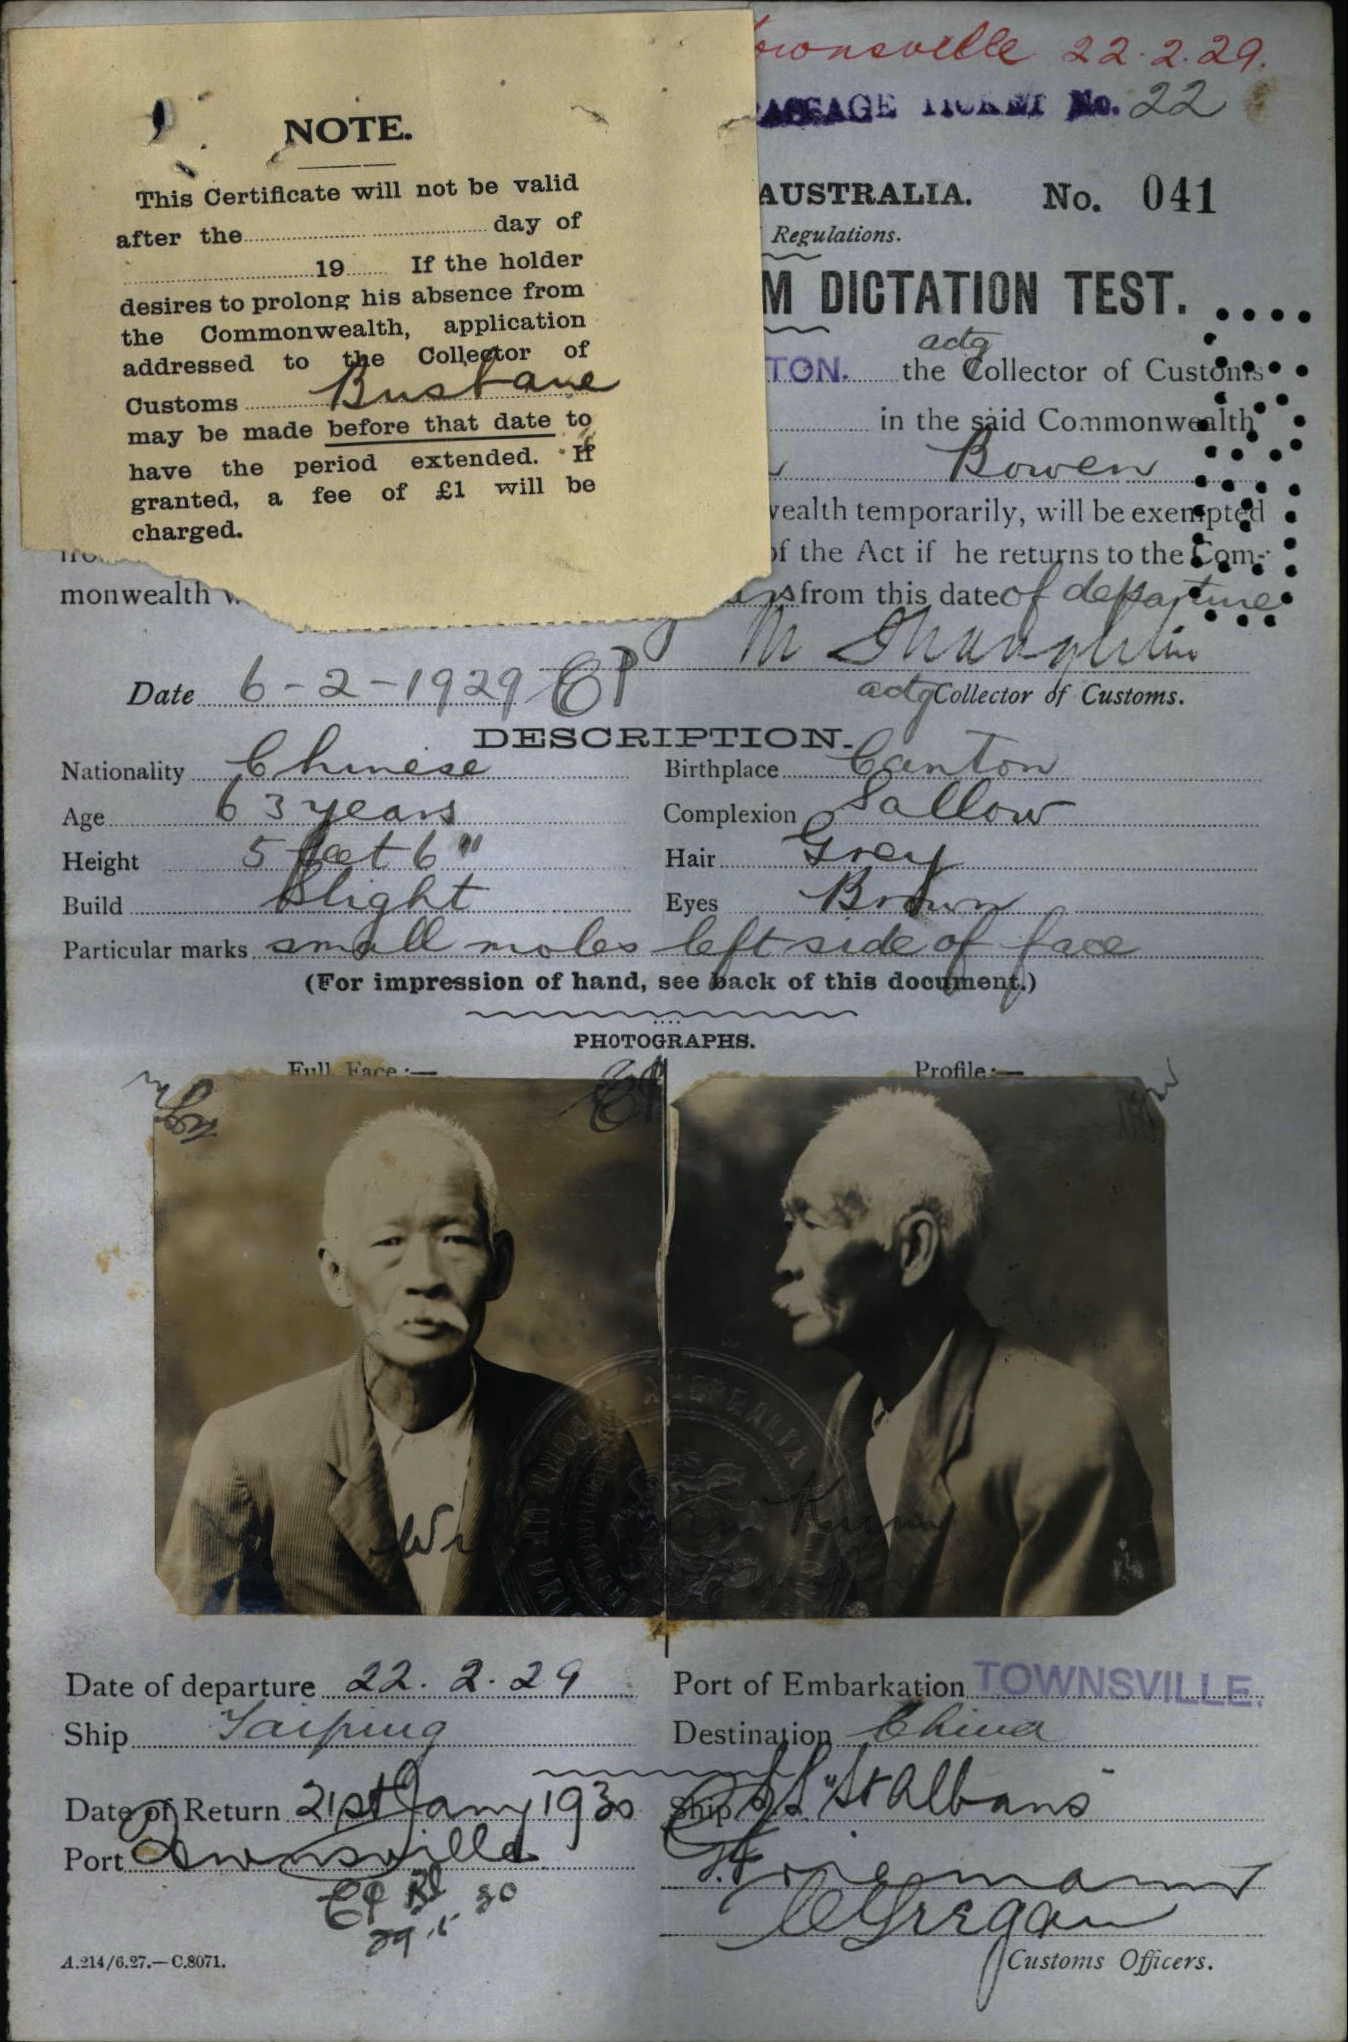 Townsville 22.2.29.
PASSAGE TICKET No. 22
NOTE.
This Certificate will not be valid
after the day of
19 If the holder
desires to prolong his absence from
the Commonwealth, application
addressed to the Collector of
Customs Brisbane
may be made before that date to
have the period extended. If
granted, a fee of £1 will be
charged.
AUSTRALIA. No. 041
Regulations.
M DICTATION TEST.
actg
TON. the Collector of Customs
in the said Commonwealth
Bowen
wealth temporarily, will be exempted
of the Act if he returns to the Com-
monwealth from this date of departure
Date 6-2-1929
actg Collector of Customs.
DESCRIPTION.
Nationality Chinese Birthplace Canton
Age 63 years Complexion Sallow
Height 5 feet 6" Hair Grey
Build Slight Eyes Brown
Particular marks small moles left side of face
(For impression of hand, see back of this document.)
PHOTOGRAPHS.
Full Face:— Profile:—
Date of departure 22.2.29 Port of Embarkation TOWNSVILLE.
Ship Taiping Destination China
Date of Return 21st Jany 1930 Ship SS "St Albans"
Port Townsville
Customs Officers.
A.214/6.27.—C.8071.